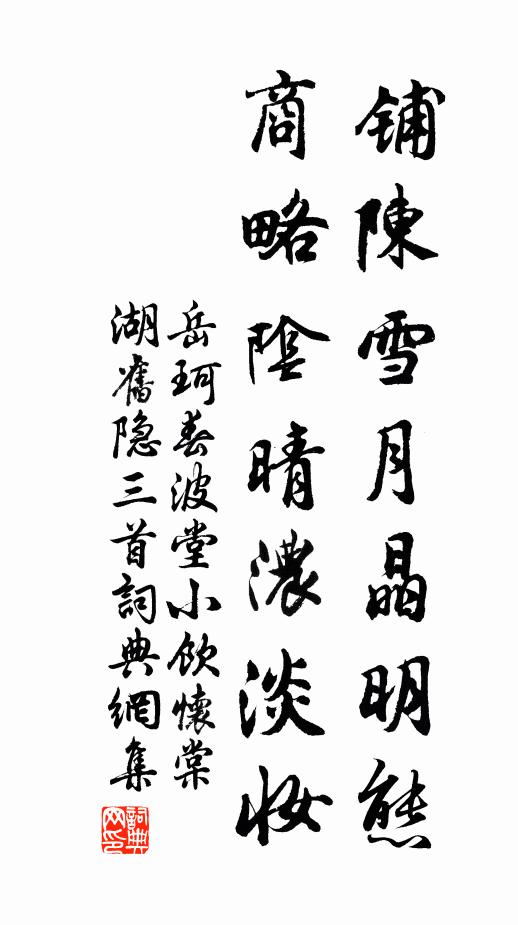 鋪陳雪月晶明態
商略陰晴濃淡妝
岳珂春波堂小飲懷棠
湖舊隐三首詞典網集
詞典网印